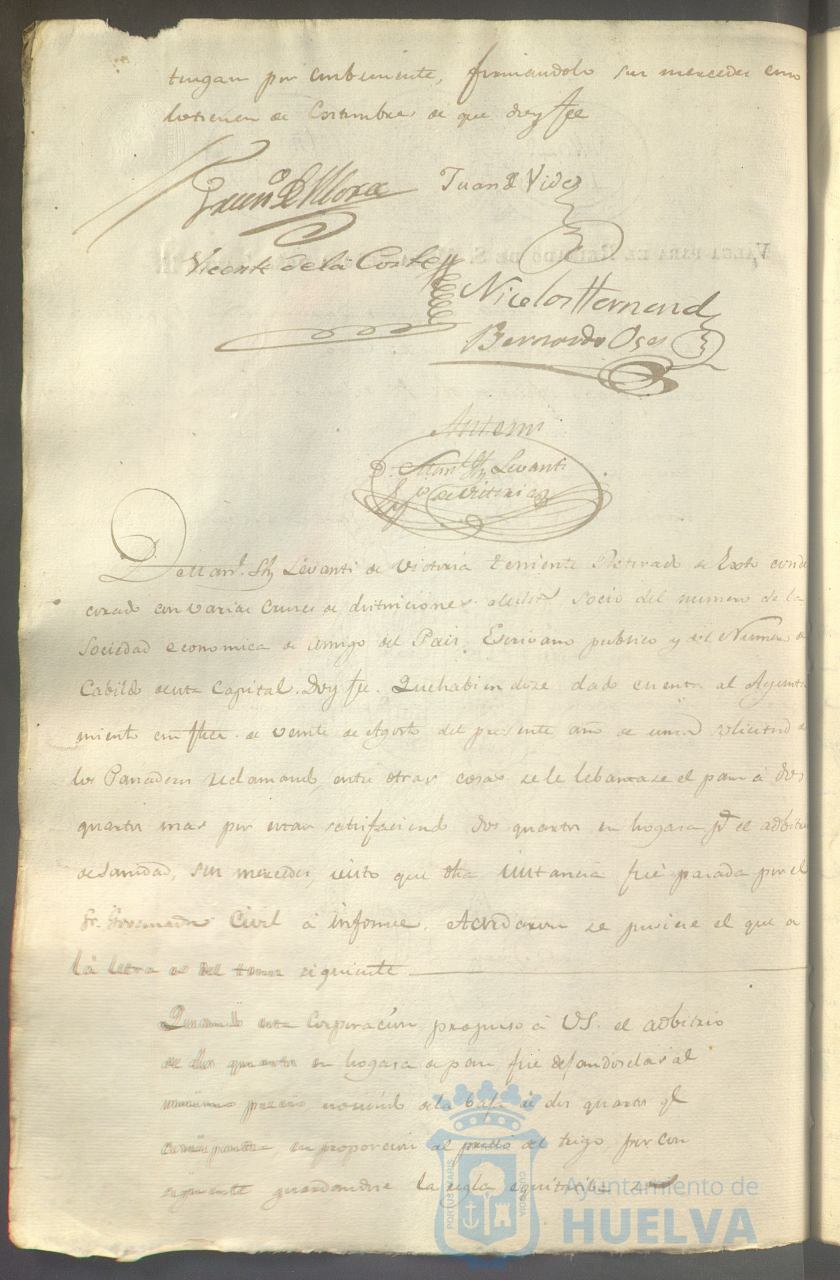 tengan por conbeniente, firmandolo sus mercedes como
lo tienen de Costumbre de que doy fee
Juan de Vides
Vicente de la Corte
Nicolas Hernand
Bernardo Oses
VALGA PARA EL REINADO DE S.
Antemi
Dn. Manl. Levanti
de Vitoria
Dn Manl. Levanti de Victoria Teniente Retirado de Exto conde
corado con varias Cruces de distinciones socio del numero de la
Sociedad economica de Amigo del Pais, Escrivano publico y del Numero
Cabildo de esta Capital. Doy fee. Que habiendose dado cuenta al Ayunta
miento en veinte de Agosto del presente año de una solicitud de
los Panaderos reclamando, entre otras cosas se le lebantase el pan à dos
quartos mas por estar satisfaciendo dos quartos en hogasa pr el adbitrio
de sanidad, sus mercedes, visto que dha instancia fué pasada por el
Sr. Governador Civil à informe. Acordaron se pusiese el que a
la letra es del tenor siguiente
Quando esta Corporacion propuso à VS. el adbitrio
de dos quartos en hogasa de pan fué
precio de la de dos quartos ql
en proporcion al precio del trigo por con
siguiente guardandose la regla equitativa
PORTUS MARIS
CUSTODIA
Ayuntamiento de
HUELVA